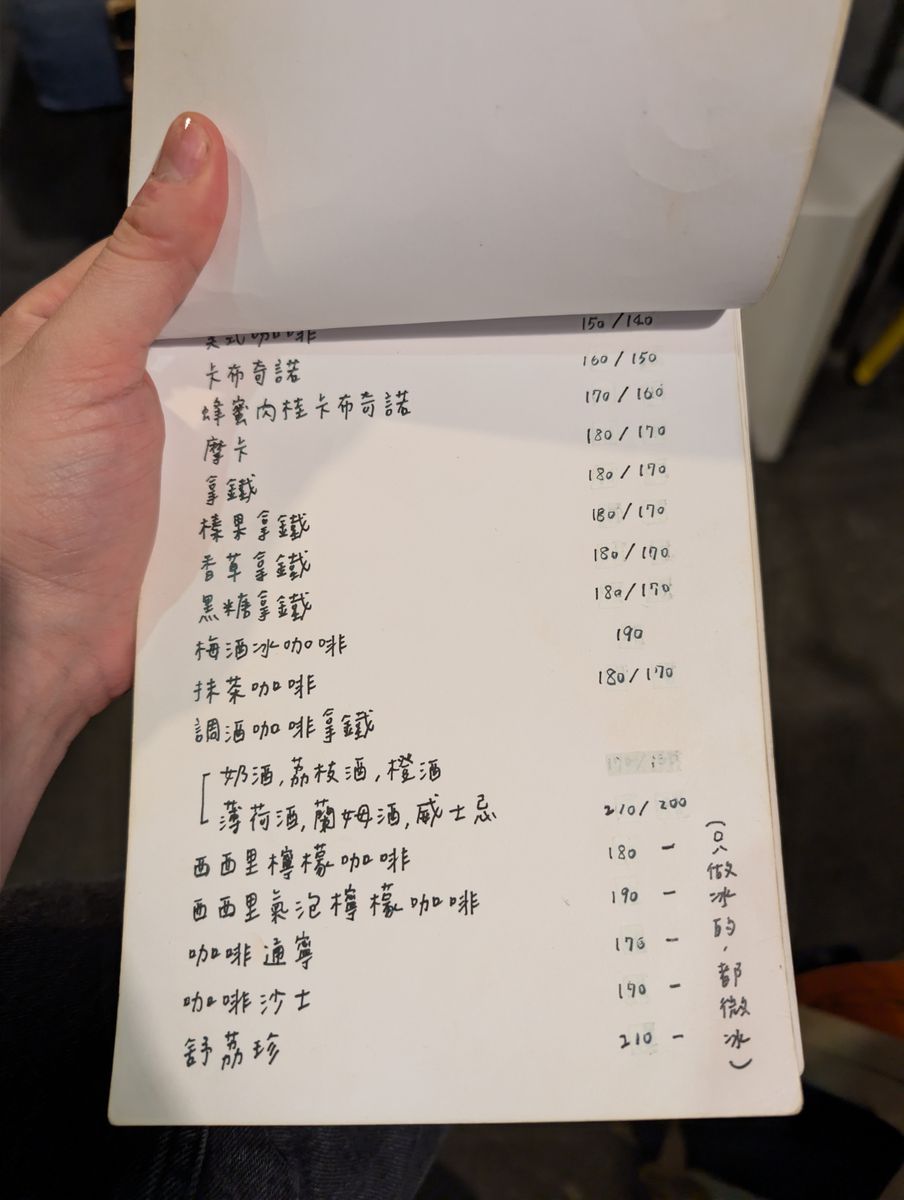 美式咖啡 150/140
卡布奇諾 160/150
蜂蜜肉桂卡布奇諾 170/160
摩卡 180/170
拿鐵 180/170
榛果拿鐵 180/170
香草拿鐵 180/170
黑糖拿鐵 180/170
梅酒冰咖啡 190
抹茶咖啡 180/170
調酒咖啡拿鐵
奶酒,荔枝酒,橙酒
薄荷酒,蘭姆酒,威士忌 210/200
西西里檸檬咖啡 180 -
西西里氣泡檸檬咖啡 190 -
咖啡通寧 170 -
咖啡沙士 190 -
舒荔珍 210 -
(只做冰的,都微冰)